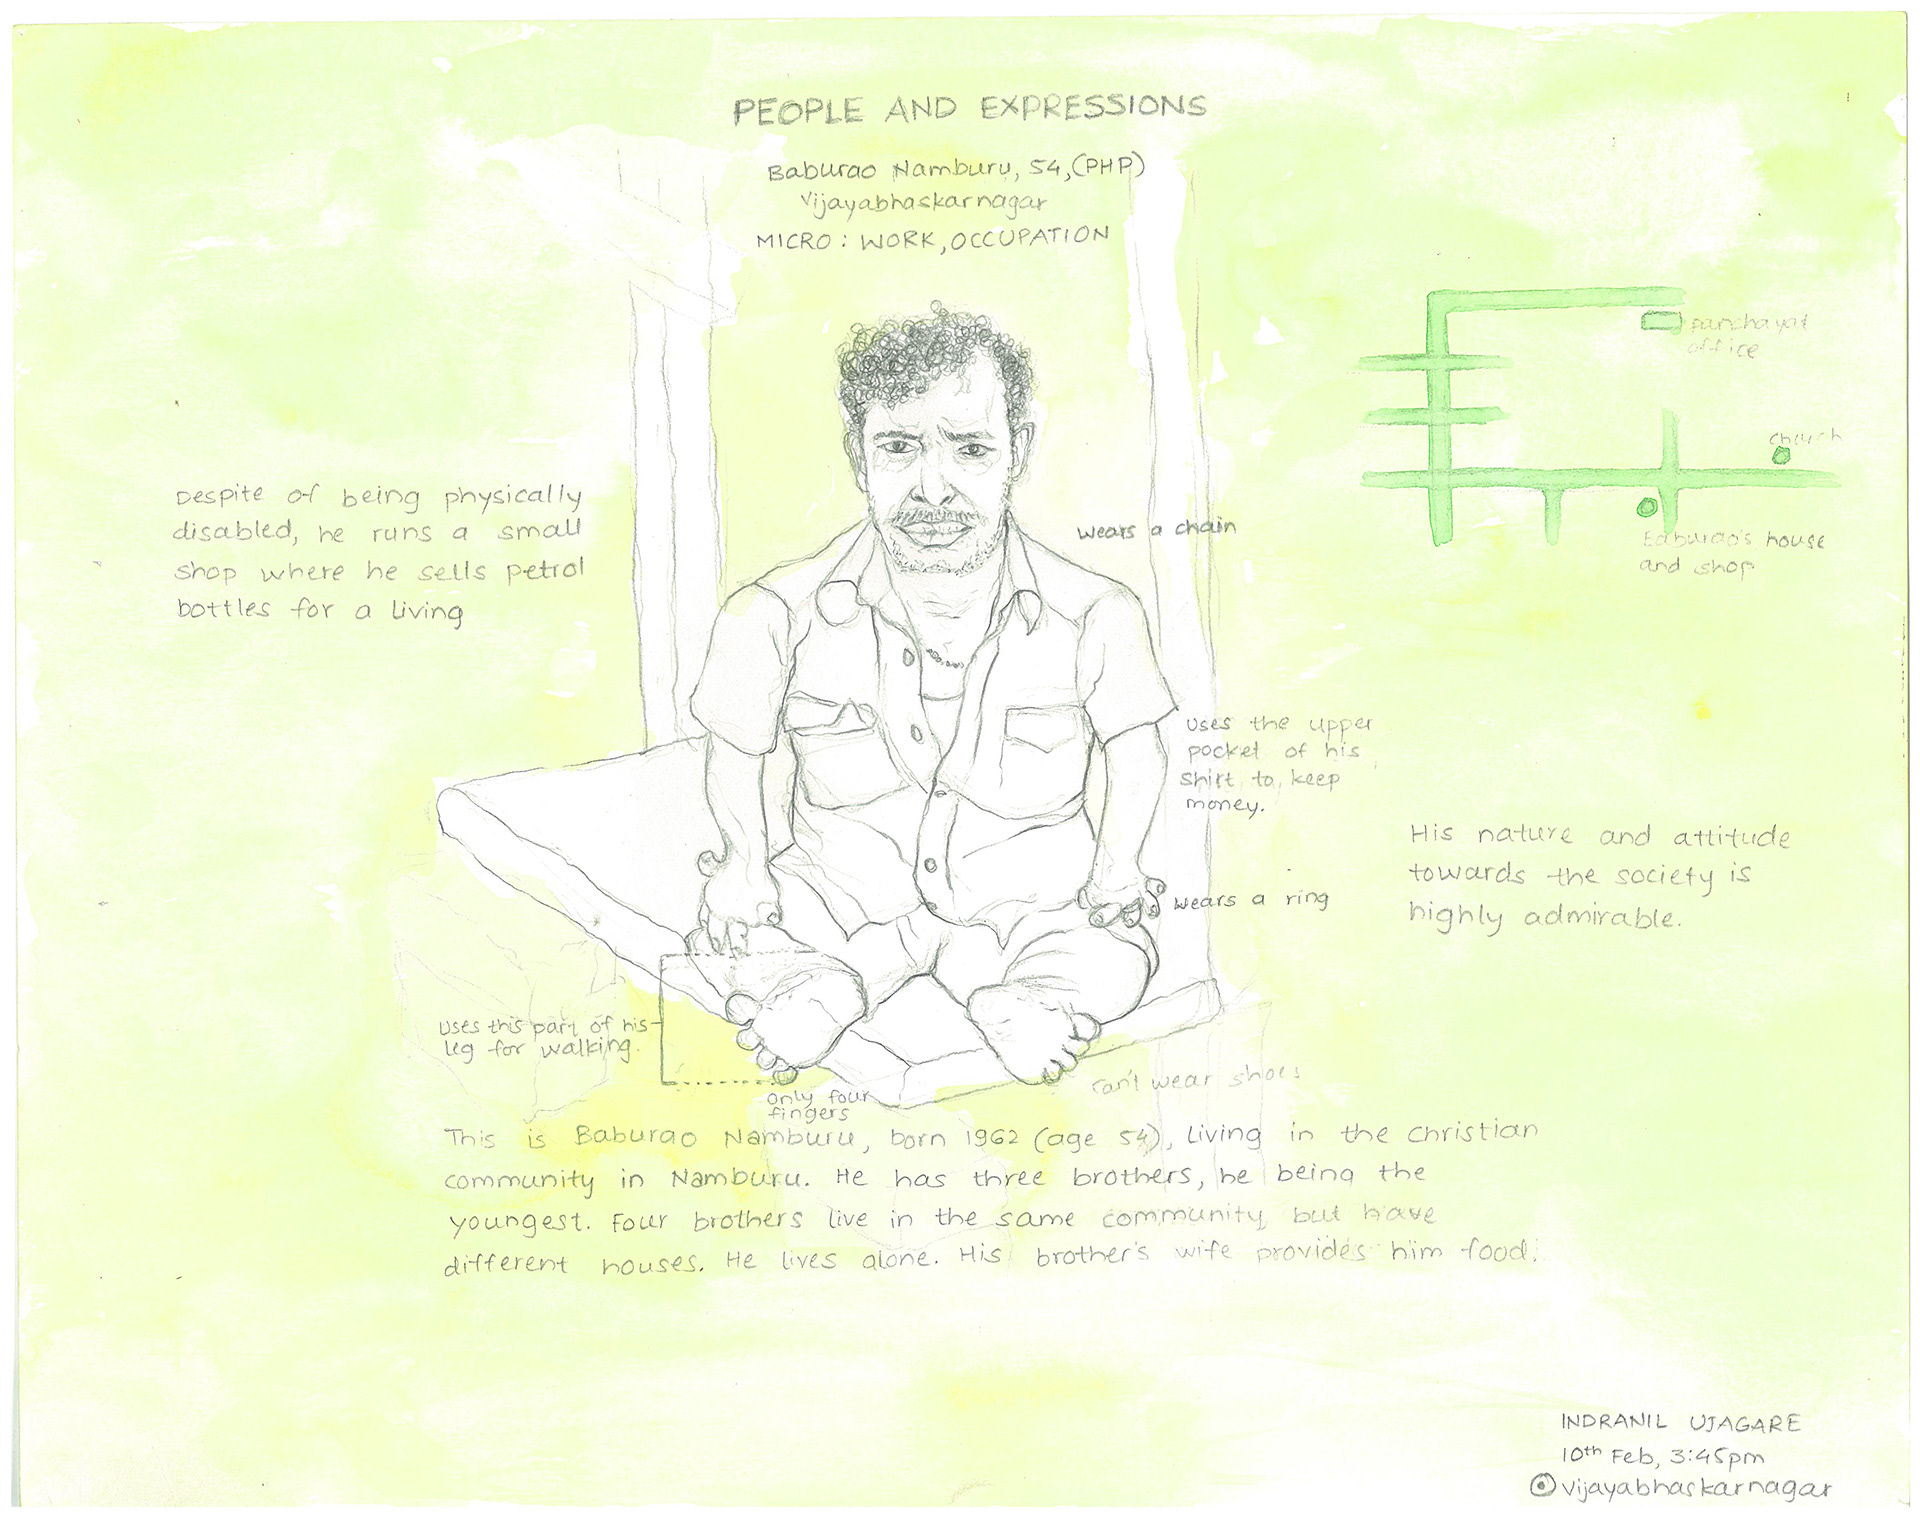 PEOPLE AND EXPRESSIONS
Baburao Namburu, 54, (PHP)
Vijayabhaskarnagar
MICRO : WORK, OCCUPATION
Panchayat
office
Church
Baburao's house
and shop
Despite of being physically
disabled, he runs a small
shop where he sells petrol
bottles for a living
Wears a chain
Uses the upper
pocket of his
shirt to keep
money.
His nature and attitude
towards the society is
highly admirable.
Wears a ring
Uses this part of his
leg for walking.
only four
fingers
can't wear shoes
This is Baburao Namburu, born 1962 (age 54), living in the christian
community in Namburu. He has three brothers, he being the
youngest. Four brothers live in the same community but have
different houses. He lives alone. His brother's wife provides him food.
INDRANIL UJAGARE
10th Feb, 3:45pm
Vijayabhaskarnagar